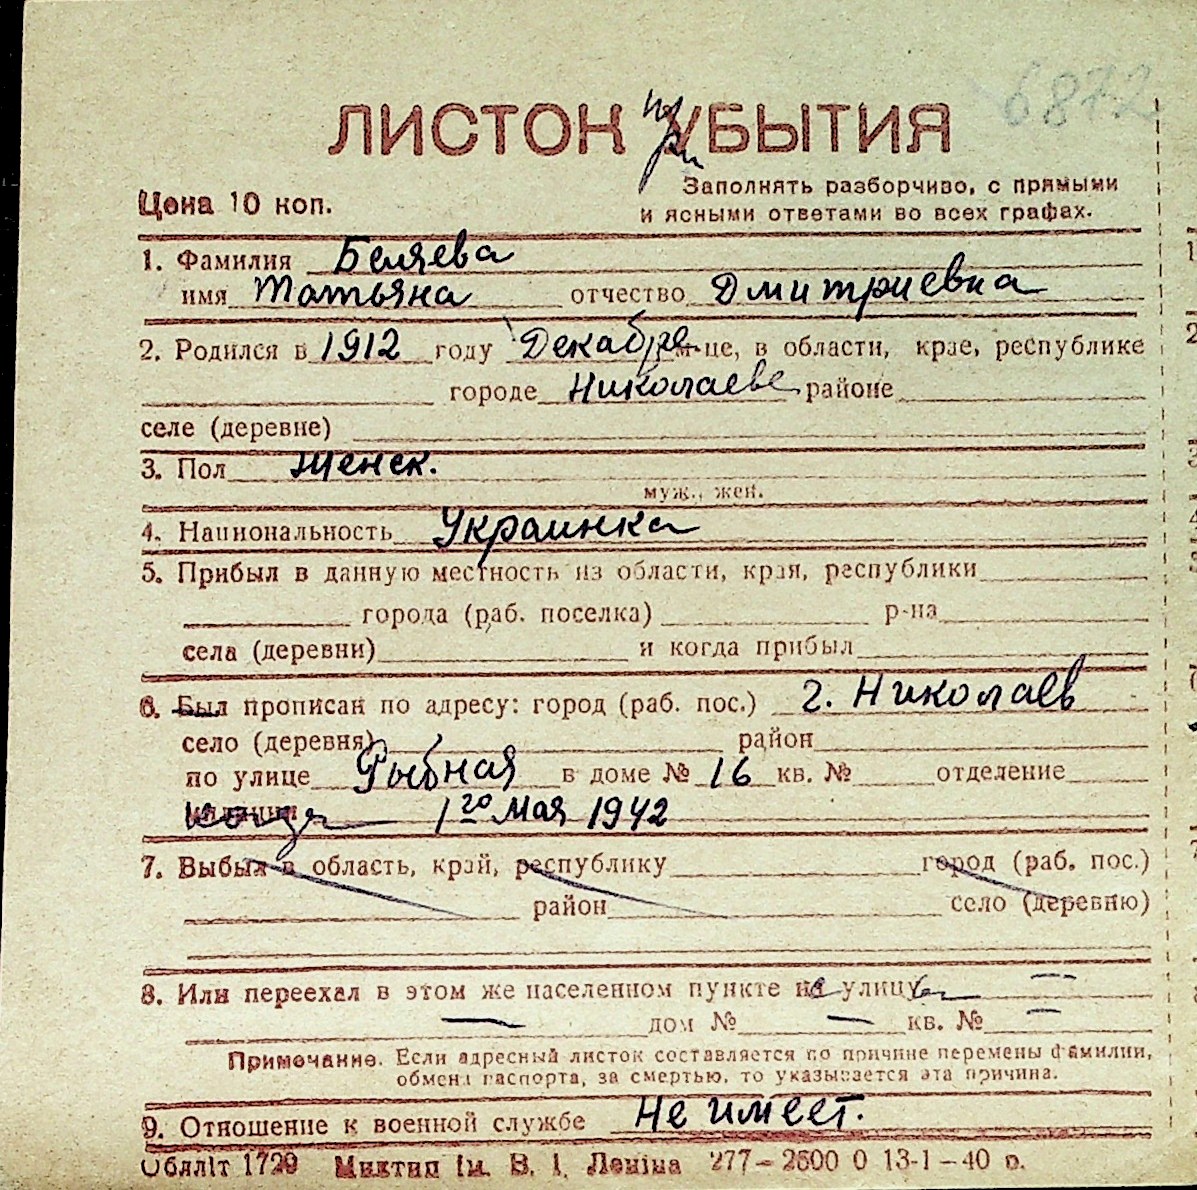 6872
ЛИСТОК при УБЫТИЯ
Цена 10 коп.
Заполнять разборчиво, с прямыми
и ясными ответами во всех графах.
1. Фамилия Беляева
имя Татьяна отчество Дмитриевна
2. Родился в 1912 году Декабре м-це, в области, крае, республике
городе Николаеве районе
селе (деревне)
3. Пол женск.
муж., жен.
4. Национальность Украинка
5. Прибыл в данную местность из области, края, республики
города (раб. поселка) р-на
села (деревни) и когда прибыл
6. Был прописан по адресу: город (раб. пос.) г. Николаев
село (деревня) район
по улице Рыбная в доме № 16 кв. № отделение
милиции когда 1го Мая 1942
7. Выбыл в область, край, республику город (раб. пос.)
район село (деревню)
8. Или переехал в этом же населенном пункте на улицу —
— дом № — кв. № —
Примечание. Если адресный листок составляется по причине перемены фамилии,
обмена паспорта, за смертью, то указывается эта причина.
9. Отношение к военной службе Не имеет.
Обллiт 1729 Миктип Iм. В. I. Ленiна 277–2500 0 13-1–40 р.